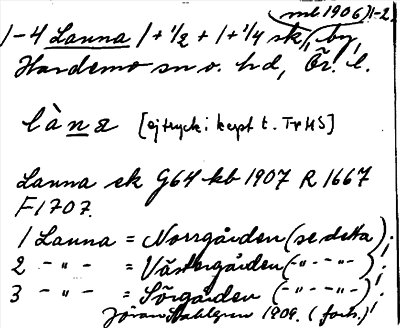 ml 1906) 1-2.
1-4 Lanna 1 + 1/2 + 1 + 1/4 sk, by,
Hardemo sn o. hd, Ör. l.
làna [ej tryck: kept t. TrHS]
Lanna ek G64 kb 1907 R 1667
F1707.
1 Lanna = Norrgården (se detta).
2 -"- = Västergården (-"- -"-)!
3 -"- = Sörgården (-"- -"-)!
Jöran Sahlgren 1909. (forts.)!